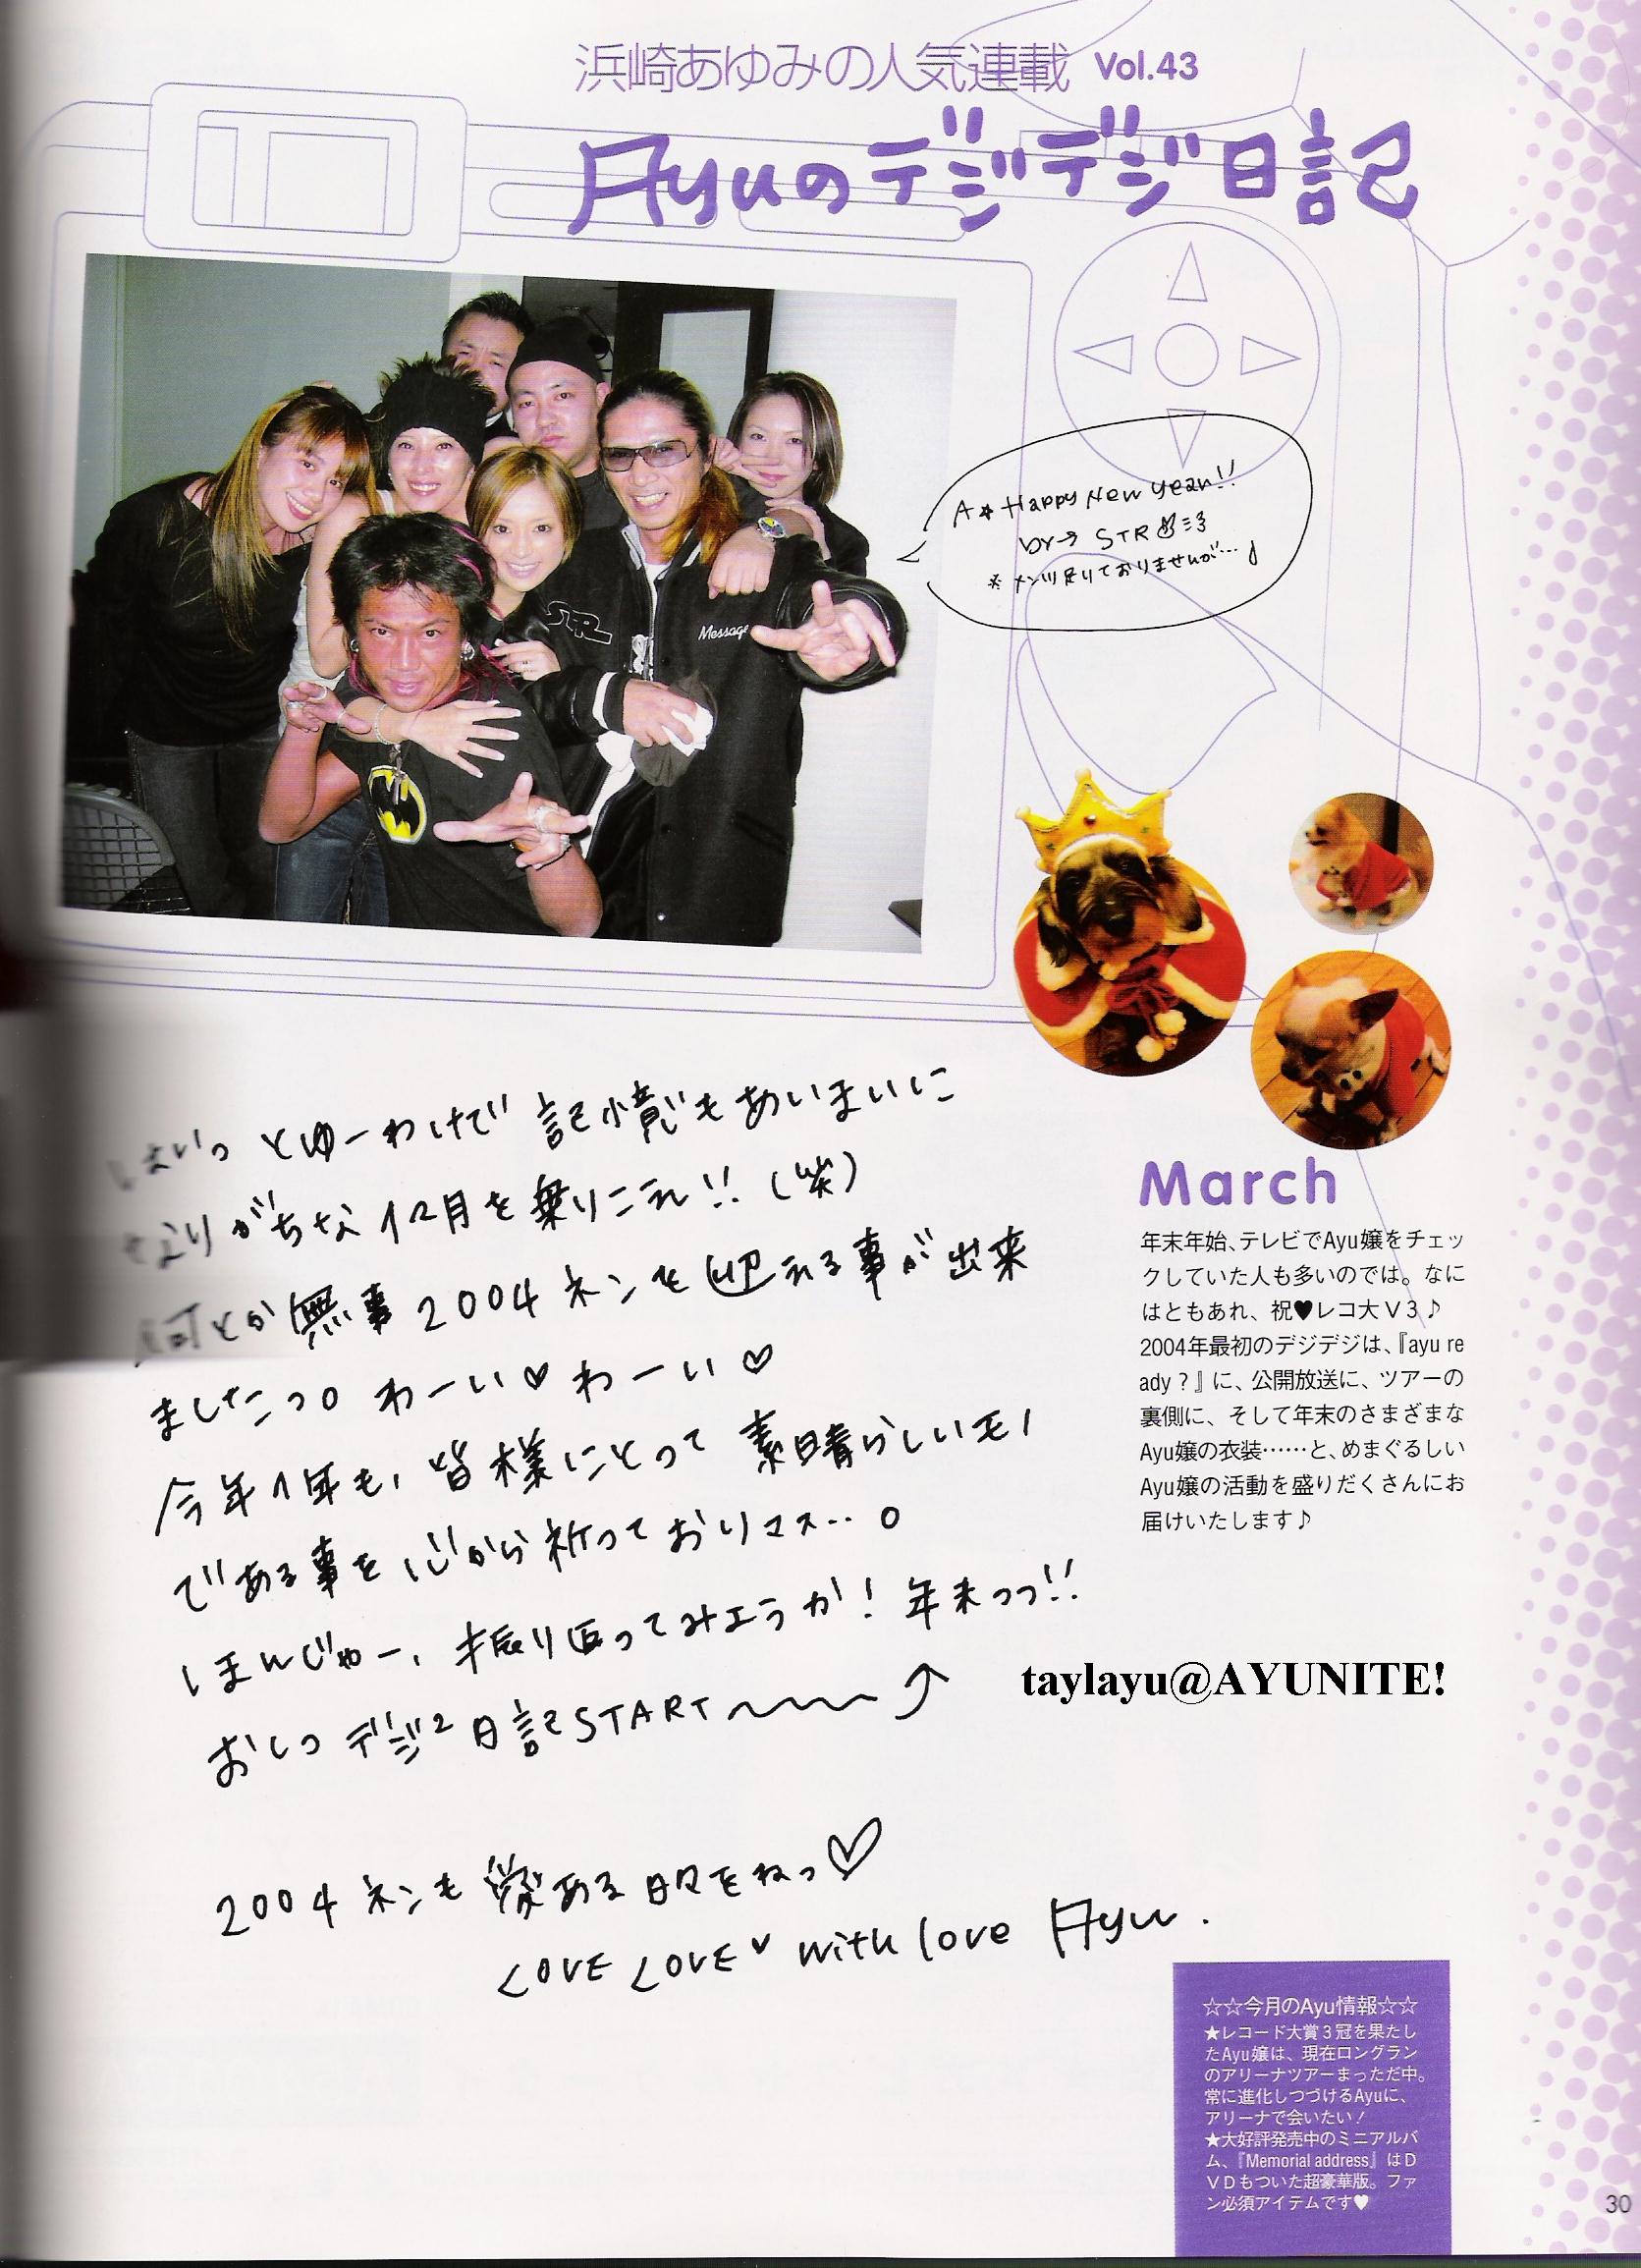 浜崎あゆみの人気連載 Vol.43
Ayuのデジデジ日記
A★Happy New Year!!
by→ STR
※メンツ足りておりませんが…♪
STR
Message
はいっ とゆーわけで 記憶もあいまいに
なりがちな 12月を乗りこえ!!(笑)
何とか無事2004ネンを迎える事が出来
ましたっ。わーい♡わーい♡
今年1年も、皆様にとって素晴らしいモノ
である事を心から祈っておりマス…。
ほんじゃー、振り返ってみようか!年末っっ!!
おしっ デジ2日記START〜〜〜
taylayu@AYUNITE!
2004ネンも愛ある日々をねっ♡
LOVE LOVE♥ with love Ayu.
March
年末年始、テレビでAyu嬢をチェッ
クしていた人も多いのでは。なに
はともあれ、祝♥レコ大V3♪
2004年最初のデジデジは、『ayu re
ady?』に、公開放送に、ツアーの
裏側に、そして年末のさまざまな
Ayu嬢の衣装……と、めまぐるしい
Ayu嬢の活動を盛りだくさんにお
届けいたします♪
☆☆今月のAyu情報☆☆
★レコード大賞3冠を果たし
たAyu嬢は、現在ロングラン
のアリーナツアーまっただ中。
常に進化しつづけるAyuに、
アリーナで会いたい!
★大好評発売中のミニアルバ
ム、『Memorial address』はD
VDもついた超豪華版。ファ
ン必須アイテムです♥
30